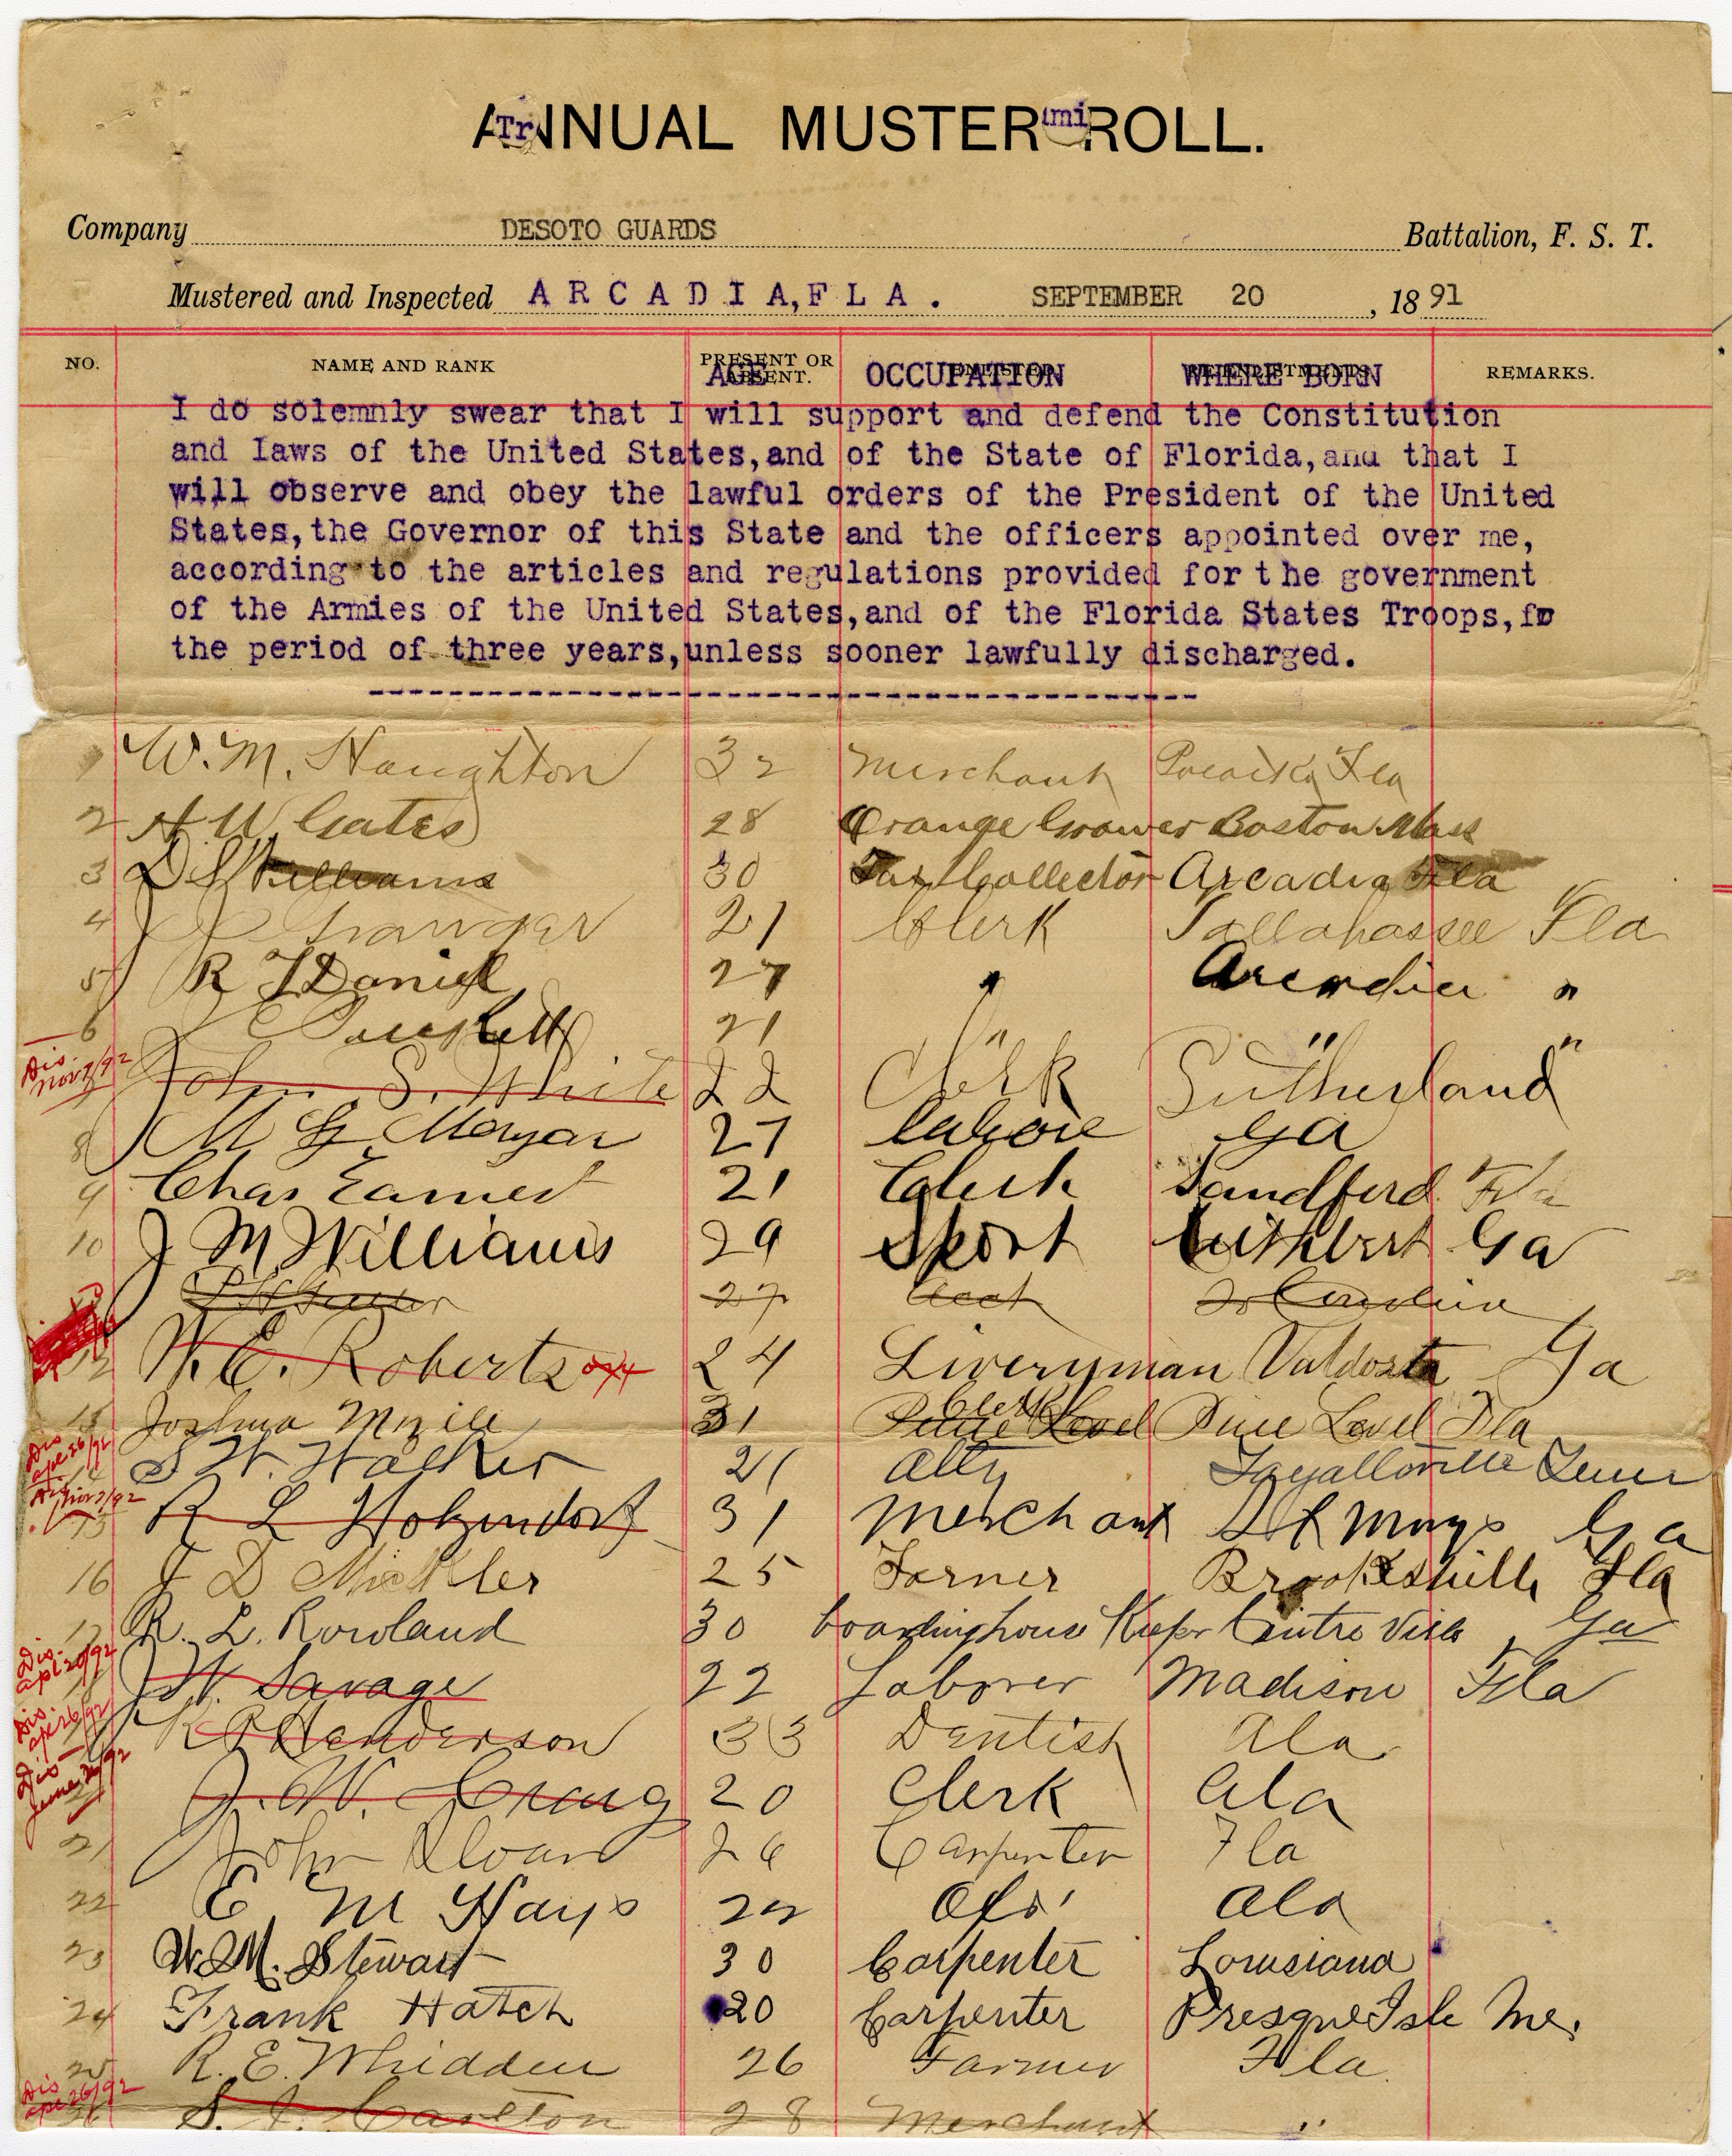 ANNUAL MUSTER ROLL.
Company DESOTO GUARDS Battalion, F. S. T.
Mustered and Inspected ARCADIA, FLA. SEPTEMBER 20, 1891
NO. NAME AND RANK AGE OCCUPATION WHERE BORN REMARKS.
I do solemnly swear that I will support and defend the Constitution
and laws of the United States, and of the State of Florida, and that I
will observe and obey the lawful orders of the President of the United
States, the Governor of this State and the officers appointed over me,
according to the articles and regulations provided for the government
of the Armies of the United States, and of the Florida States Troops, for
the period of three years, unless sooner lawfully discharged.
1 W. M. Haughton 32 Merchant Fla
2 H W Gates 28 Orange Grower Boston Mass
3 D S Williams 30 Tax Collector Arcadia Fla
4 21 Clerk Tallahassee Fla
5 R T Daniel 27 " Arcadia "
6 21 " " "
Dis. Nov 7/92 John S. White 22 Clerk Sutherland
8 M G Morgan 27 Ga
9 Chas Earnest 21 Clerk Sandford Fla
10 J M Williams 29 Sport Cuthbert Ga
27
12 W. E. Robertson 24 Liveryman Valdosta Ga
13 Joshua Mizell 31 Clerk Pine Level Fla
Dis Apr 26/92 14 S W. Walker 21 Atty Fayetteville Tenn
Nov 7/92 15 R L Holzendorf 31 Merchant St Marys Ga
16 J D Mickler 25 Farner Brooksville Fla
17 R. L. Rowland 30 boardinghouse Keeper Centre Ville Ga
Dis. Apl 20/92 J W. Savage 22 Laborer Madison Fla
Dis. Apr 26/92 Henderson 33 Dentist Ala
Dis June J. W. Craig 20 Clerk Ala
21 John Sloan 26 Carpenter Fla
22 E M Hays 22 Ala
23 W M. Stewart 30 Carpenter Louisiana
24 Frank Hatch 20 Carpenter Presque Isle Me.
25 R. E. Whidden 26 Farmer Fla.
Dis Apr 26/92 26 S. J. Carlton 28 Merchant "